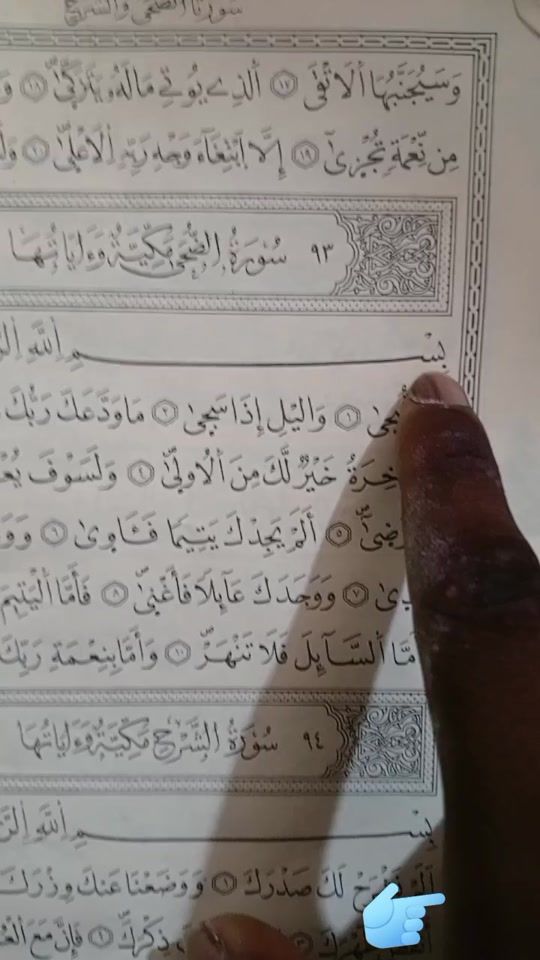 سورتا الضحى والشرح
وَسَيُجَنَّبُهَا أَلَاتْقَى ١٧ اَلذِے يُوتِے مَالَهُۥ يَتَزَكَّىٰ ١٨
مِن نِّعْمَةٖ تُجْزَىٰٓ ١٩ إِلَّا اَبْتِغَآءَ وَجْهِ رَبِّهِ اِلَاعْلَىٰ
٩٣ سُورَةُ الضُّحَىٰ مَكِّيَّةٌ وَءَايَاتُهَا
بِسْمِ اِللَّهِ
١ وَاليْلِ إِذَا سَجَىٰ ٢ مَا وَدَّعَكَ رَبُّكَ
خَيْرٌ لَّكَ مِنَ اَلُاولَىٰ ٤ وَلَسَوْفَ
٥ أَلَمْ يَجِدْكَ يَتِيماٗ فَـَٔاوَىٰ ٦
٧ وَوَجَدَكَ عَآئِلاٗ فَأَغْنَىٰ ٨ فَأَمَّا اَلْيَتِيمَ
اَلسَّآئِلَ فَلَا تَنْهَرْ ١٠ وَأَمَّا بِنِعْمَةِ رَبِّكَ
٩٤ سُورَةُ الشَّرْحِ مَكِّيَّةٌ وَءَايَاتُهَا
بِسْمِ اِللَّهِ
أَلَمْ نَشْرَحْ لَكَ صَدْرَكَ ١ وَوَضَعْنَا عَنكَ وِزْرَكَ
ذِكْرَكَ ٤ فَإِنَّ مَعَ